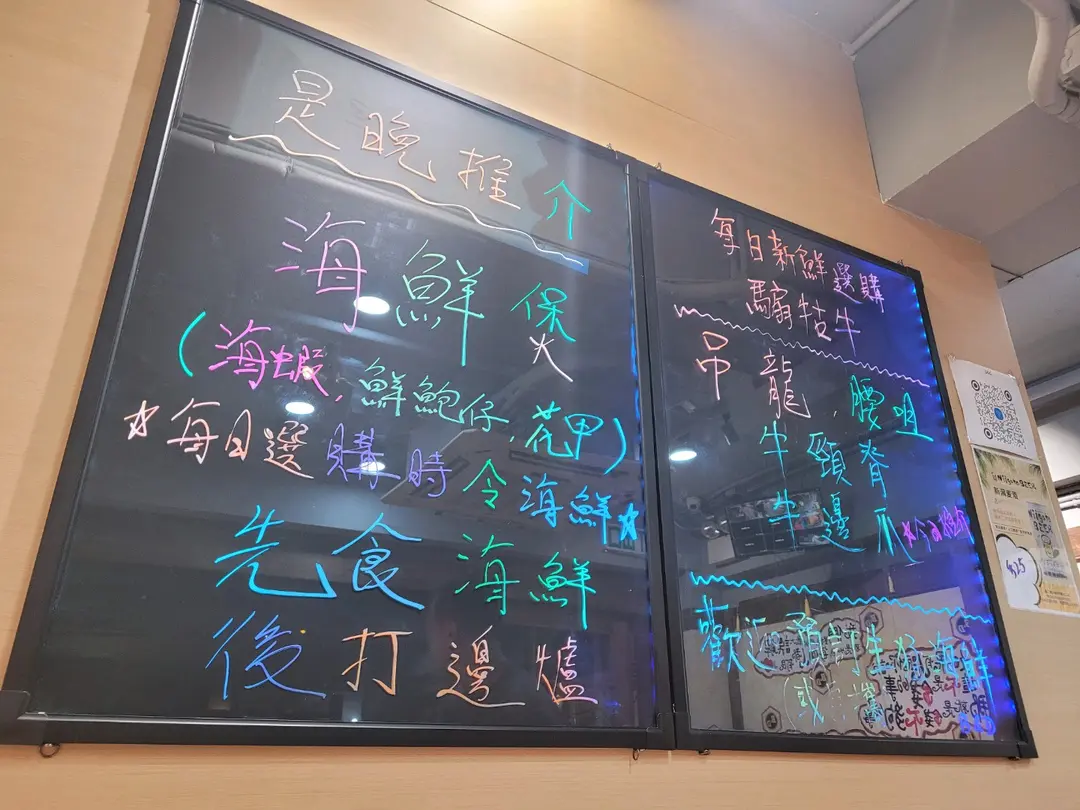 是晚推介
海鮮煲
(海蝦,鮮鮑仔,花甲)
☆每日選購時令海鮮☆
先食海鮮
後打邊爐
每日新鮮選購
騸牯牛
吊龍,腰咀
牛頸脊
牛邊爪
歡迎預訂生猛海鮮
(或自攜